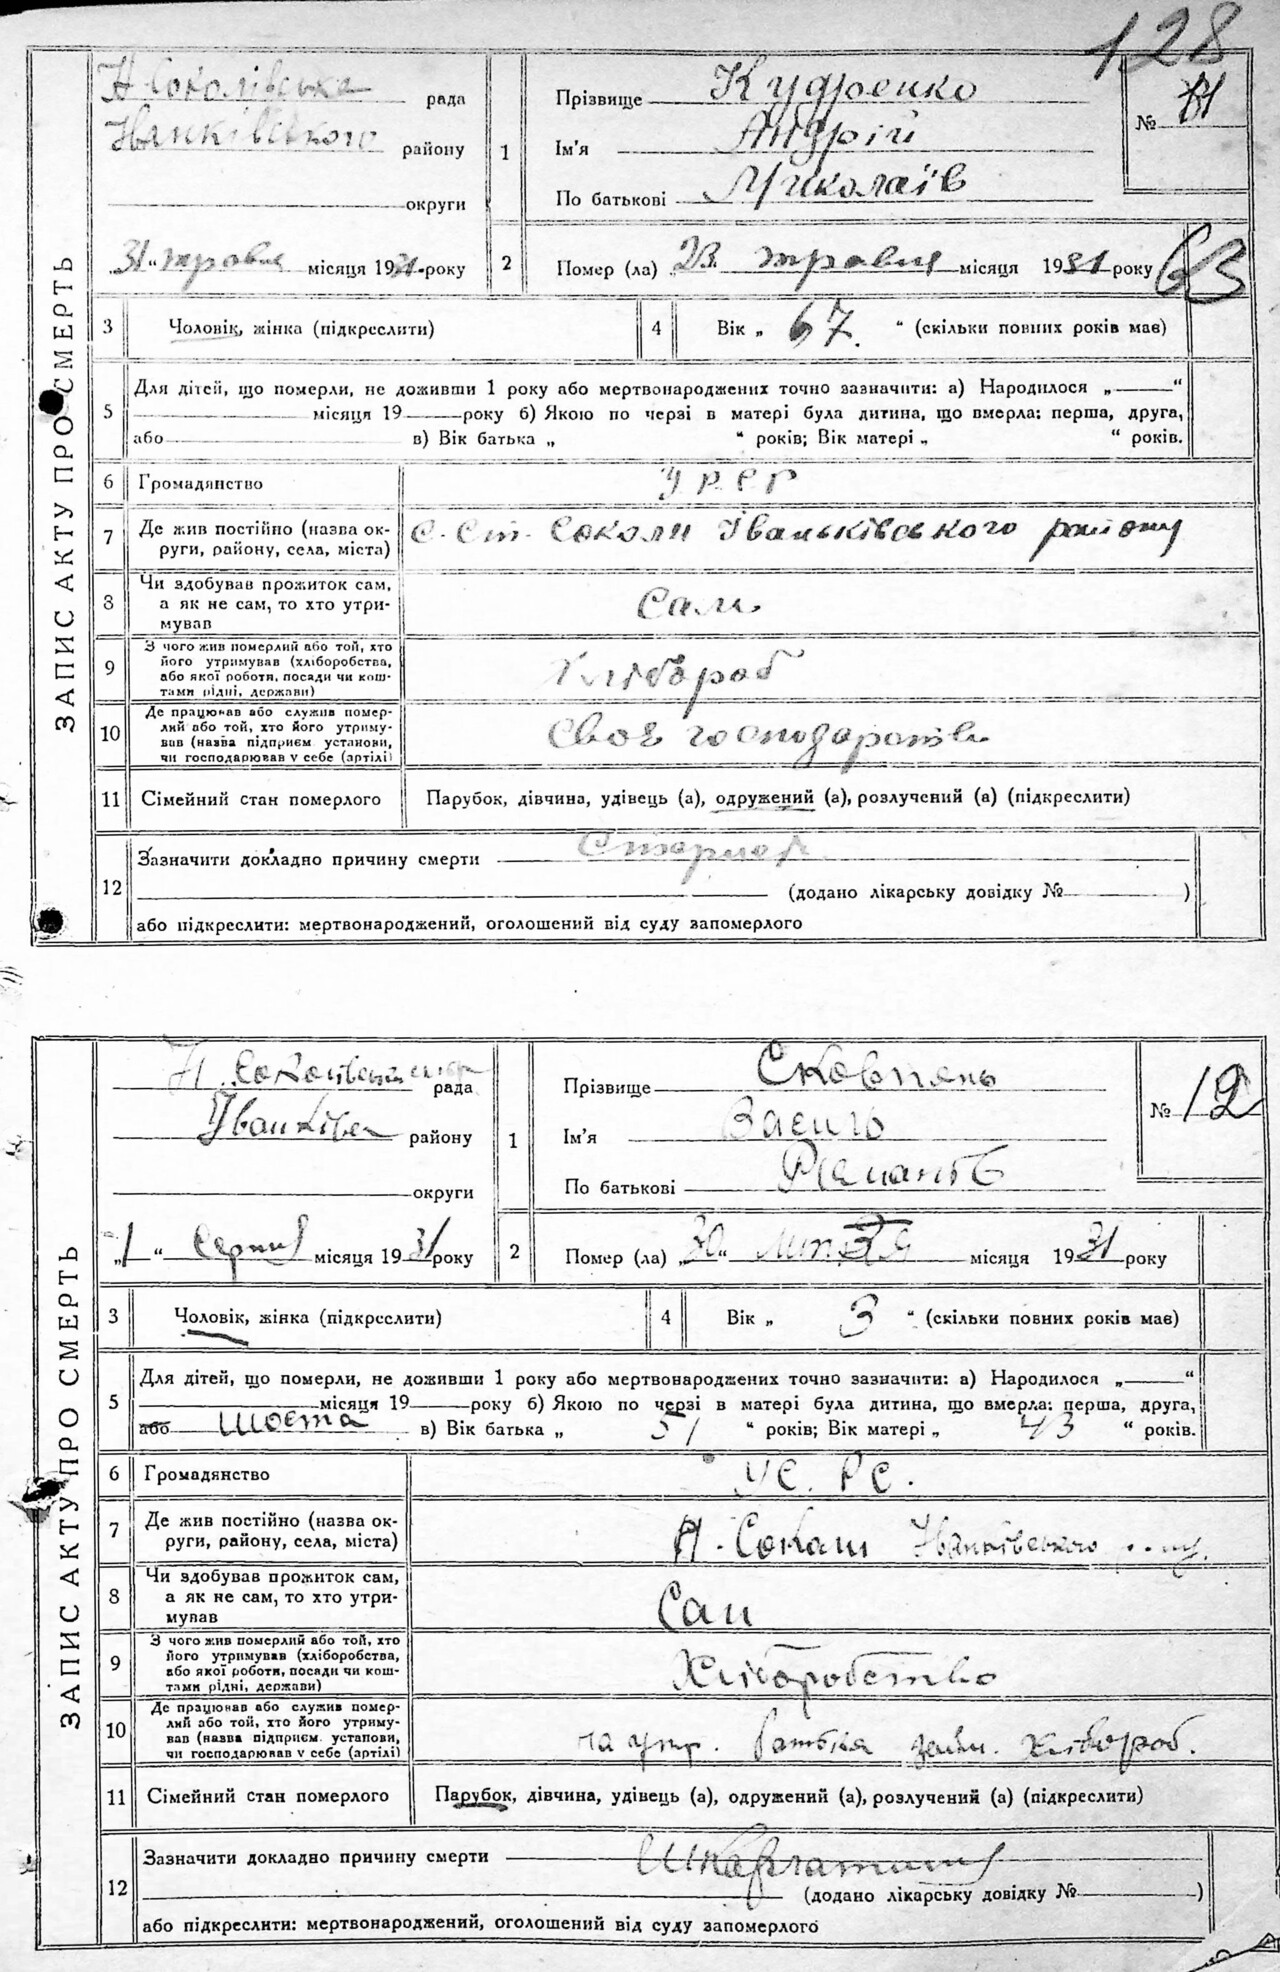 128
ЗАПИС АКТУ ПРО СМЕРТЬ
Н Соколівська рада
Іванківського району
округи
„31“ травня місяця 1931 року
1
Прізвище Кудренко
Ім'я Андрій
По батькові Миколаїв
№ 11
2
Помер (ла) „23 травня місяця 1931 року
63
3
Чоловік, жінка (підкреслити)
4
Вік „ 67. “ (скільки повних років має)
5
Для дітей, що померли, не доживши 1 року або мертвонароджених точно зазначити: а) Народилося „ “
місяця 19 року б) Якою по черзі в матері була дитина, що вмерла: перша, друга,
або в) Вік батька „ “ років; Вік матері „ “ років.
6
Громадянство
УРСР
7
Де жив постійно (назва ок-
руги, району, села, міста)
с. Ст. Соколи Іваньківського району
8
Чи здобував прожиток сам,
а як не сам, то хто утри-
мував
Сам
9
З чого жив померлий або той, хто
його утримував (хліборобства,
або якої роботи, посади чи кош-
тами рідні, держави)
Хлібороб
10
Де працював або служив помер-
лий або той, хто його утриму-
вав (назва підприєм. установи,
чи господарював у себе (артілі)
Своє господарство
11
Сімейний стан померлого
Парубок, дівчина, удівець (а), одружений (а), розлучений (а) (підкреслити)
12
Зазначити докладно причину смерти
(додано лікарську довідку № )
або підкреслити: мертвонароджений, оголошений від суду запомерлого
ЗАПИС АКТУ ПРО СМЕРТЬ
Н. Соколівська рада
Іванківськ району
округи
„1“ Серпня місяця 1931 року
1
Прізвище Сковпень
Ім'я Василь
По батькові Романів
№ 12
2
Помер (ла) „30“ Липня місяця 1931 року
3
Чоловік, жінка (підкреслити)
4
Вік „ 3 “ (скільки повних років має)
5
Для дітей, що померли, не доживши 1 року або мертвонароджених точно зазначити: а) Народилося „ “
місяця 19 року б) Якою по черзі в матері була дитина, що вмерла: перша, друга,
або шоста в) Вік батька „ 51 “ років; Вік матері „ 43 “ років.
6
Громадянство
УС. РС.
7
Де жив постійно (назва ок-
руги, району, села, міста)
Н. Соколи Іванківського
8
Чи здобував прожиток сам,
а як не сам, то хто утри-
мував
Сам
9
З чого жив померлий або той, хто
його утримував (хліборобства,
або якої роботи, посади чи кош-
тами рідні, держави)
Хліборобство
10
Де працював або служив помер-
лий або той, хто його утриму-
вав (назва підприєм. установи,
чи господарював у себе (артілі)
на утр. батька хлібороб.
11
Сімейний стан померлого
Парубок, дівчина, удівець (а), одружений (а), розлучений (а) (підкреслити)
12
Зазначити докладно причину смерти Шкарлатина
(додано лікарську довідку № )
або підкреслити: мертвонароджений, оголошений від суду запомерлого